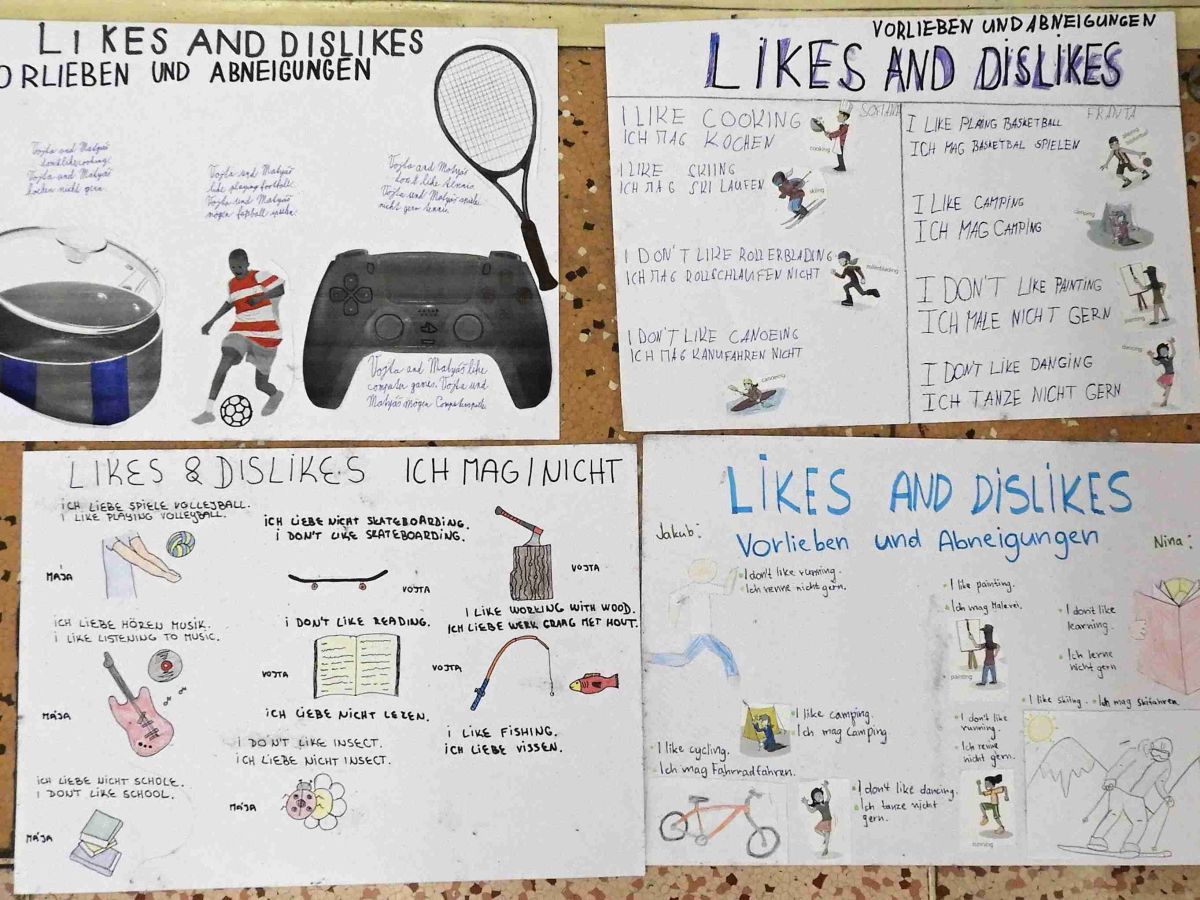 LIKES AND DISLIKES
ORLIEBEN UND ABNEIGUNGEN
Vojta and Matyáš
don't like cooking.
Vojta und Matyáš
kochen nicht gern.
Vojta and Matyáš
like playing football.
Vojta und Matyáš
mögen fußball spielen.
Vojta and Matyáš
don't like tennis.
Vojta und Matyáš spiele
nicht gern tennis.
Vojta and Matyáš like
computer games. Vojta und
Matyáš mögen Computerspiele
VORLIEBEN UND ABNEIGUNGEN
LIKES AND DISLIKES
I LIKE COOKING
ICH MAG KOCHEN
cooking
I LIKE SKIING
ICH MAG SKI LAUFEN
skiing
I DON'T LIKE ROLLERBLADING
ICH MAG ROLLSCHLAUFEN NICHT
rollerblading
I DON'T LIKE CANOEING
ICH MAG KANUFAHREN NICHT
canoeing
FRANTA
I LIKE PLAING BASKETBALL
ICH MAG BASKETBAL SPIELEN
I LIKE CAMPING
ICH MAG CAMPING
camping
I DON'T LIKE PAINTING
ICH MALE NICHT GERN
painting
I DON'T LIKE DANGING
ICH TANZE NICHT GERN
dancing
LIKES & DISLIKES ICH MAG/NICHT
ICH LIEBE SPIELE VOLLEJBALL.
I LIKE PLAYING VOLLEYBALL.
MÁJA
ICH LIEBE HÖREN MUSIK.
I LIKE LISTENING TO MUSIC.
MÁJA
ICH LIEBE NICHT SCHOLE.
I DON'T LIKE SCHOOL.
MÁJA
ICH LIEBE NICHT SKATEBOARDING.
I DON'T LIKE SKATEBOARDING.
VOJTA
I DON'T LIKE READING.
VOJTA
ICH LIEBE NICHT LEZEN.
I DON'T LIKE INSECT.
ICH LIEBE NICHT INSECT.
MÁJA
VOJTA
I LIKE WORKING WITH WOOD.
ICH LIEBE WERK GRAAG MET HOUT.
VOJTA
I LIKE FISHING.
ICH LIEBE VISSEN.
LIKES AND DISLIKES
Vorlieben und Abneigungen
Jakub:
I don't like running.
Ich renne nicht gern.
I like camping.
Ich mag Camping.
I like cycling.
Ich mag Fahrradfahren.
I don't like dancing.
Ich tanze nicht
gern.
Nina:
I like painting.
Ich mag Malerei.
painting
I don't like
learning.
Ich lerne
nicht gern
I like skiing. Ich mag skifahren.
I don't like
running.
Ich renne
nicht gern.
running